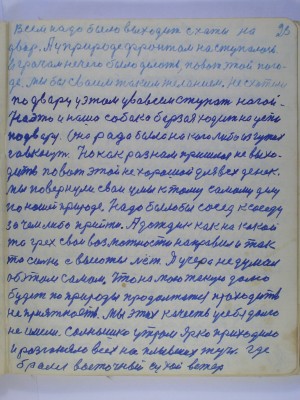 Всем надо было выходить с хаты на 26
двор. А у природе фронтам наступала
в грача нечего было делать, по вот этой пого-
де. Мы бы своем таким желанием. Не схотели
по двару у этом увавеем ступать нагой.
Нашто и наша собака борзая ходит на цепи
по двору. Она рада была на кого либо из чужих
гавкнут. Но как раз нам пришлось не выхо-
дить по вот этой не хорошой для всех денёк.
Мы повернули свои цели к тому самому делу
по нашей природе. Надо было бы сосед к соседу
за чем либо прийти. А дождик как на какой
то грех свои возможности направил и так
то силы с высоты льёт. Я учора не думал
об этом самом. Что на мою текущую долю
будет по природы продолжатся проходить
не приятность. Мы этих качеств у себя долго
не имели. Солнышко утром ярко приходило
и разгоняло всех наплывших туч. Где
брался восточный сухой ветер